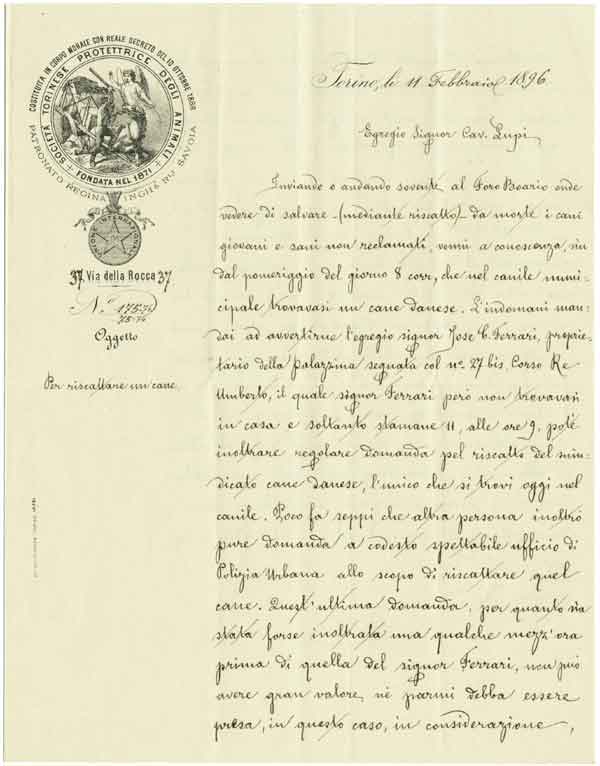 COSTITUITA IN CORPO MORALE CON REALE DECRETO DEL 10 OTTOBRE 1888
SOCIETÀ TORINESE PROTETTRICE DEGLI ANIMALI
FONDATA NEL 1871
PATRONATO REGINA
SAVOIA
UNIONE INTERNATIONAL
37. Via della Rocca 37
N.° 175-74
75-74
Oggetto
Per riscattare un cane.
Torino, li 11 Febbraio 1896
Egregio Signor Cav. Lupi,
Inviando o andando sovente al Foro Boario onde
vedere di salvare (mediante riscatto) da morte i cani
giovani e sani non reclamati, venni a conoscenza, sin
dal pomeriggio del giorno 8 corr, che nel canile muni-
cipale trovavasi un cane danese. L'indomani man-
dai ad avvertirne l'egregio signor Jose C. Ferrari, proprie-
tario della Palazzina segnata col n.° 27 bis, Corso Re
Umberto, il quale signor Ferrari però non trovavasi
in casa e soltanto stamane 11, alle ore 9, potè
inoltrare regolare domanda pel riscatto del sin-
dicato cane danese, l'unico che si trovi oggi nel
canile. Poco fa seppi che altra persona inoltrò
pure domanda a codesto spettabile ufficio di
Polizia Urbana allo scopo di riscattare quel
cane. Quest'ultima domanda, per quanto sia
stata forse inoltrata una qualche mezz'ora
prima di quella del signor Ferrari, non può
avere gran valore, nè parmi debba essere
presa, in questo caso, in considerazione,